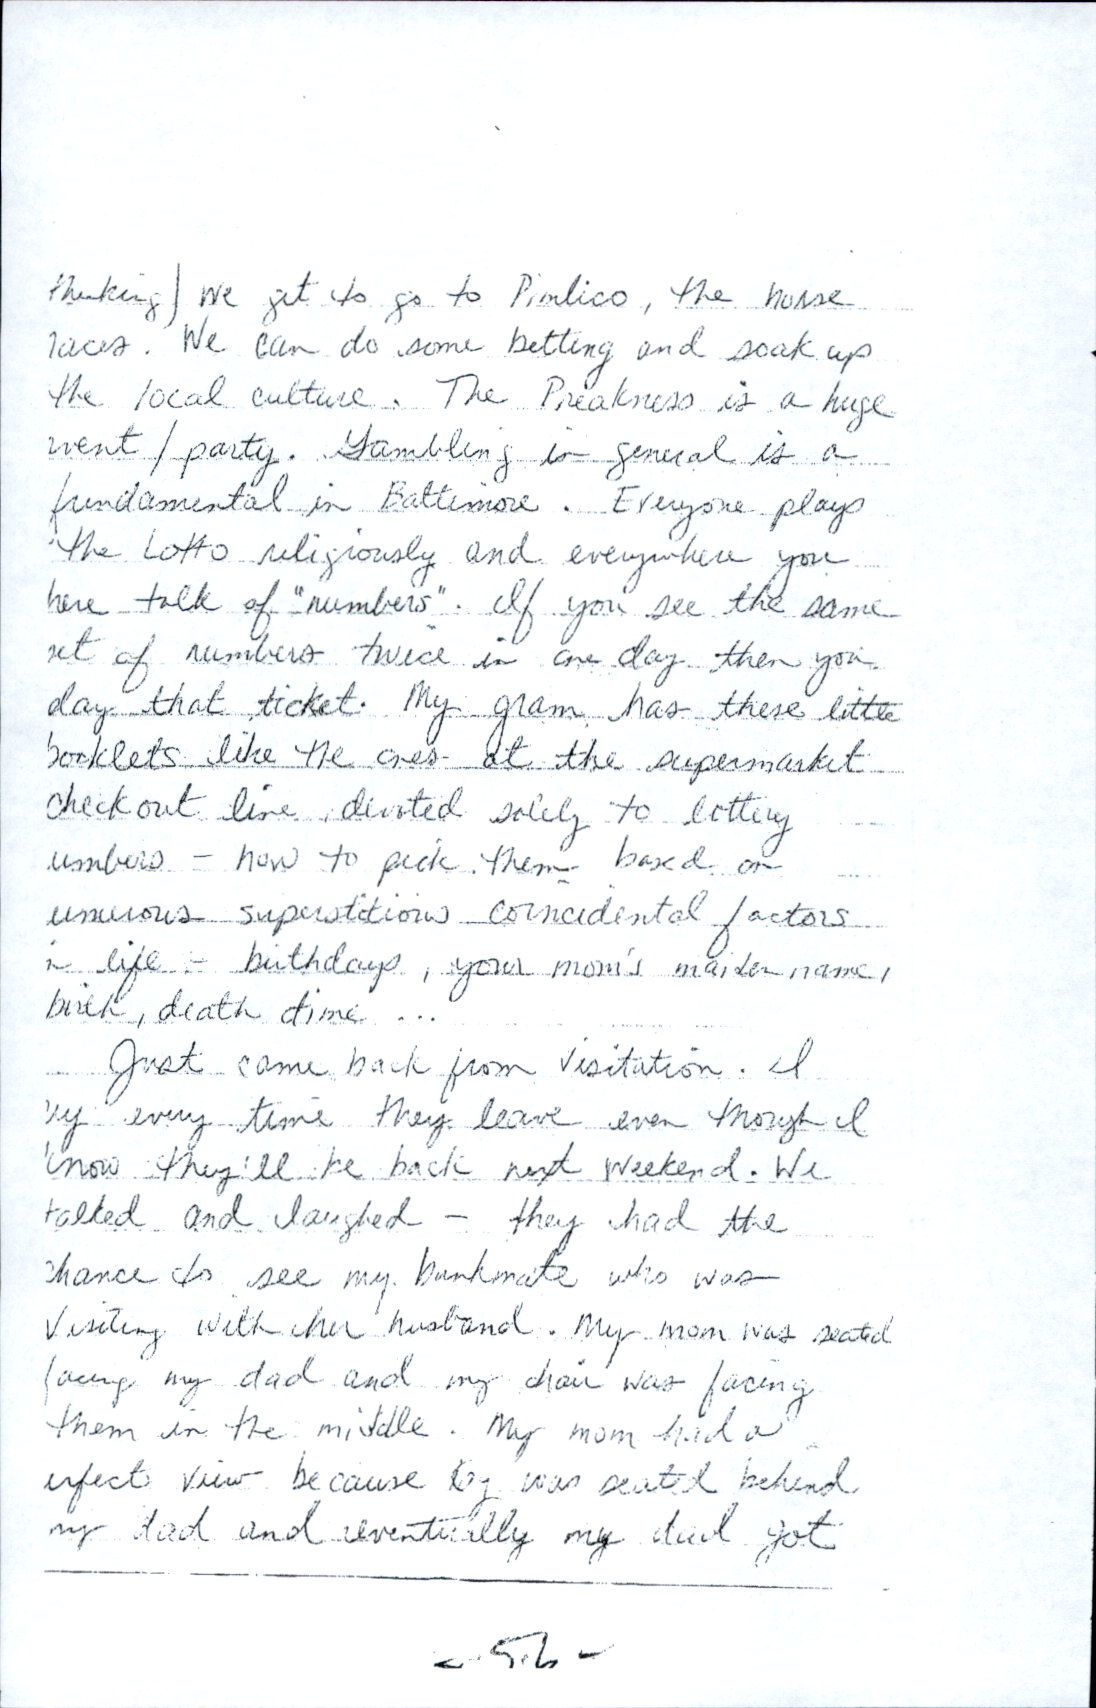 thinking) We get to go to Pimlico, the horse
races. We can do some betting and soak up
the local culture. The Preakness is a huge
event / party. Gambling in general is a
fundamental in Baltimore. Everyone plays
the Lotto religiously and everywhere you
here talk of "numbers". If you see the same
set of numbers twice in one day then you
day that ticket. My gram has these little
booklets like the ones at the supermarket
checkout line devoted solely to lottery
umbers - how to pick them based on
umerous superstitious coincidental factors
in life - birthdays, your mom's maiden name,
birth, death time ...
Just came back from visitation. I
ry every time they leave even though I
know they'll be back next weekend. We
talked and laughed - they had the
chance to see my bunkmate who was
visiting with her husband. My mom was seated
facing my dad and my chair was facing
them in the middle. My mom had a
erfect view because was seated behind
my dad and eventually my dad got
-56-